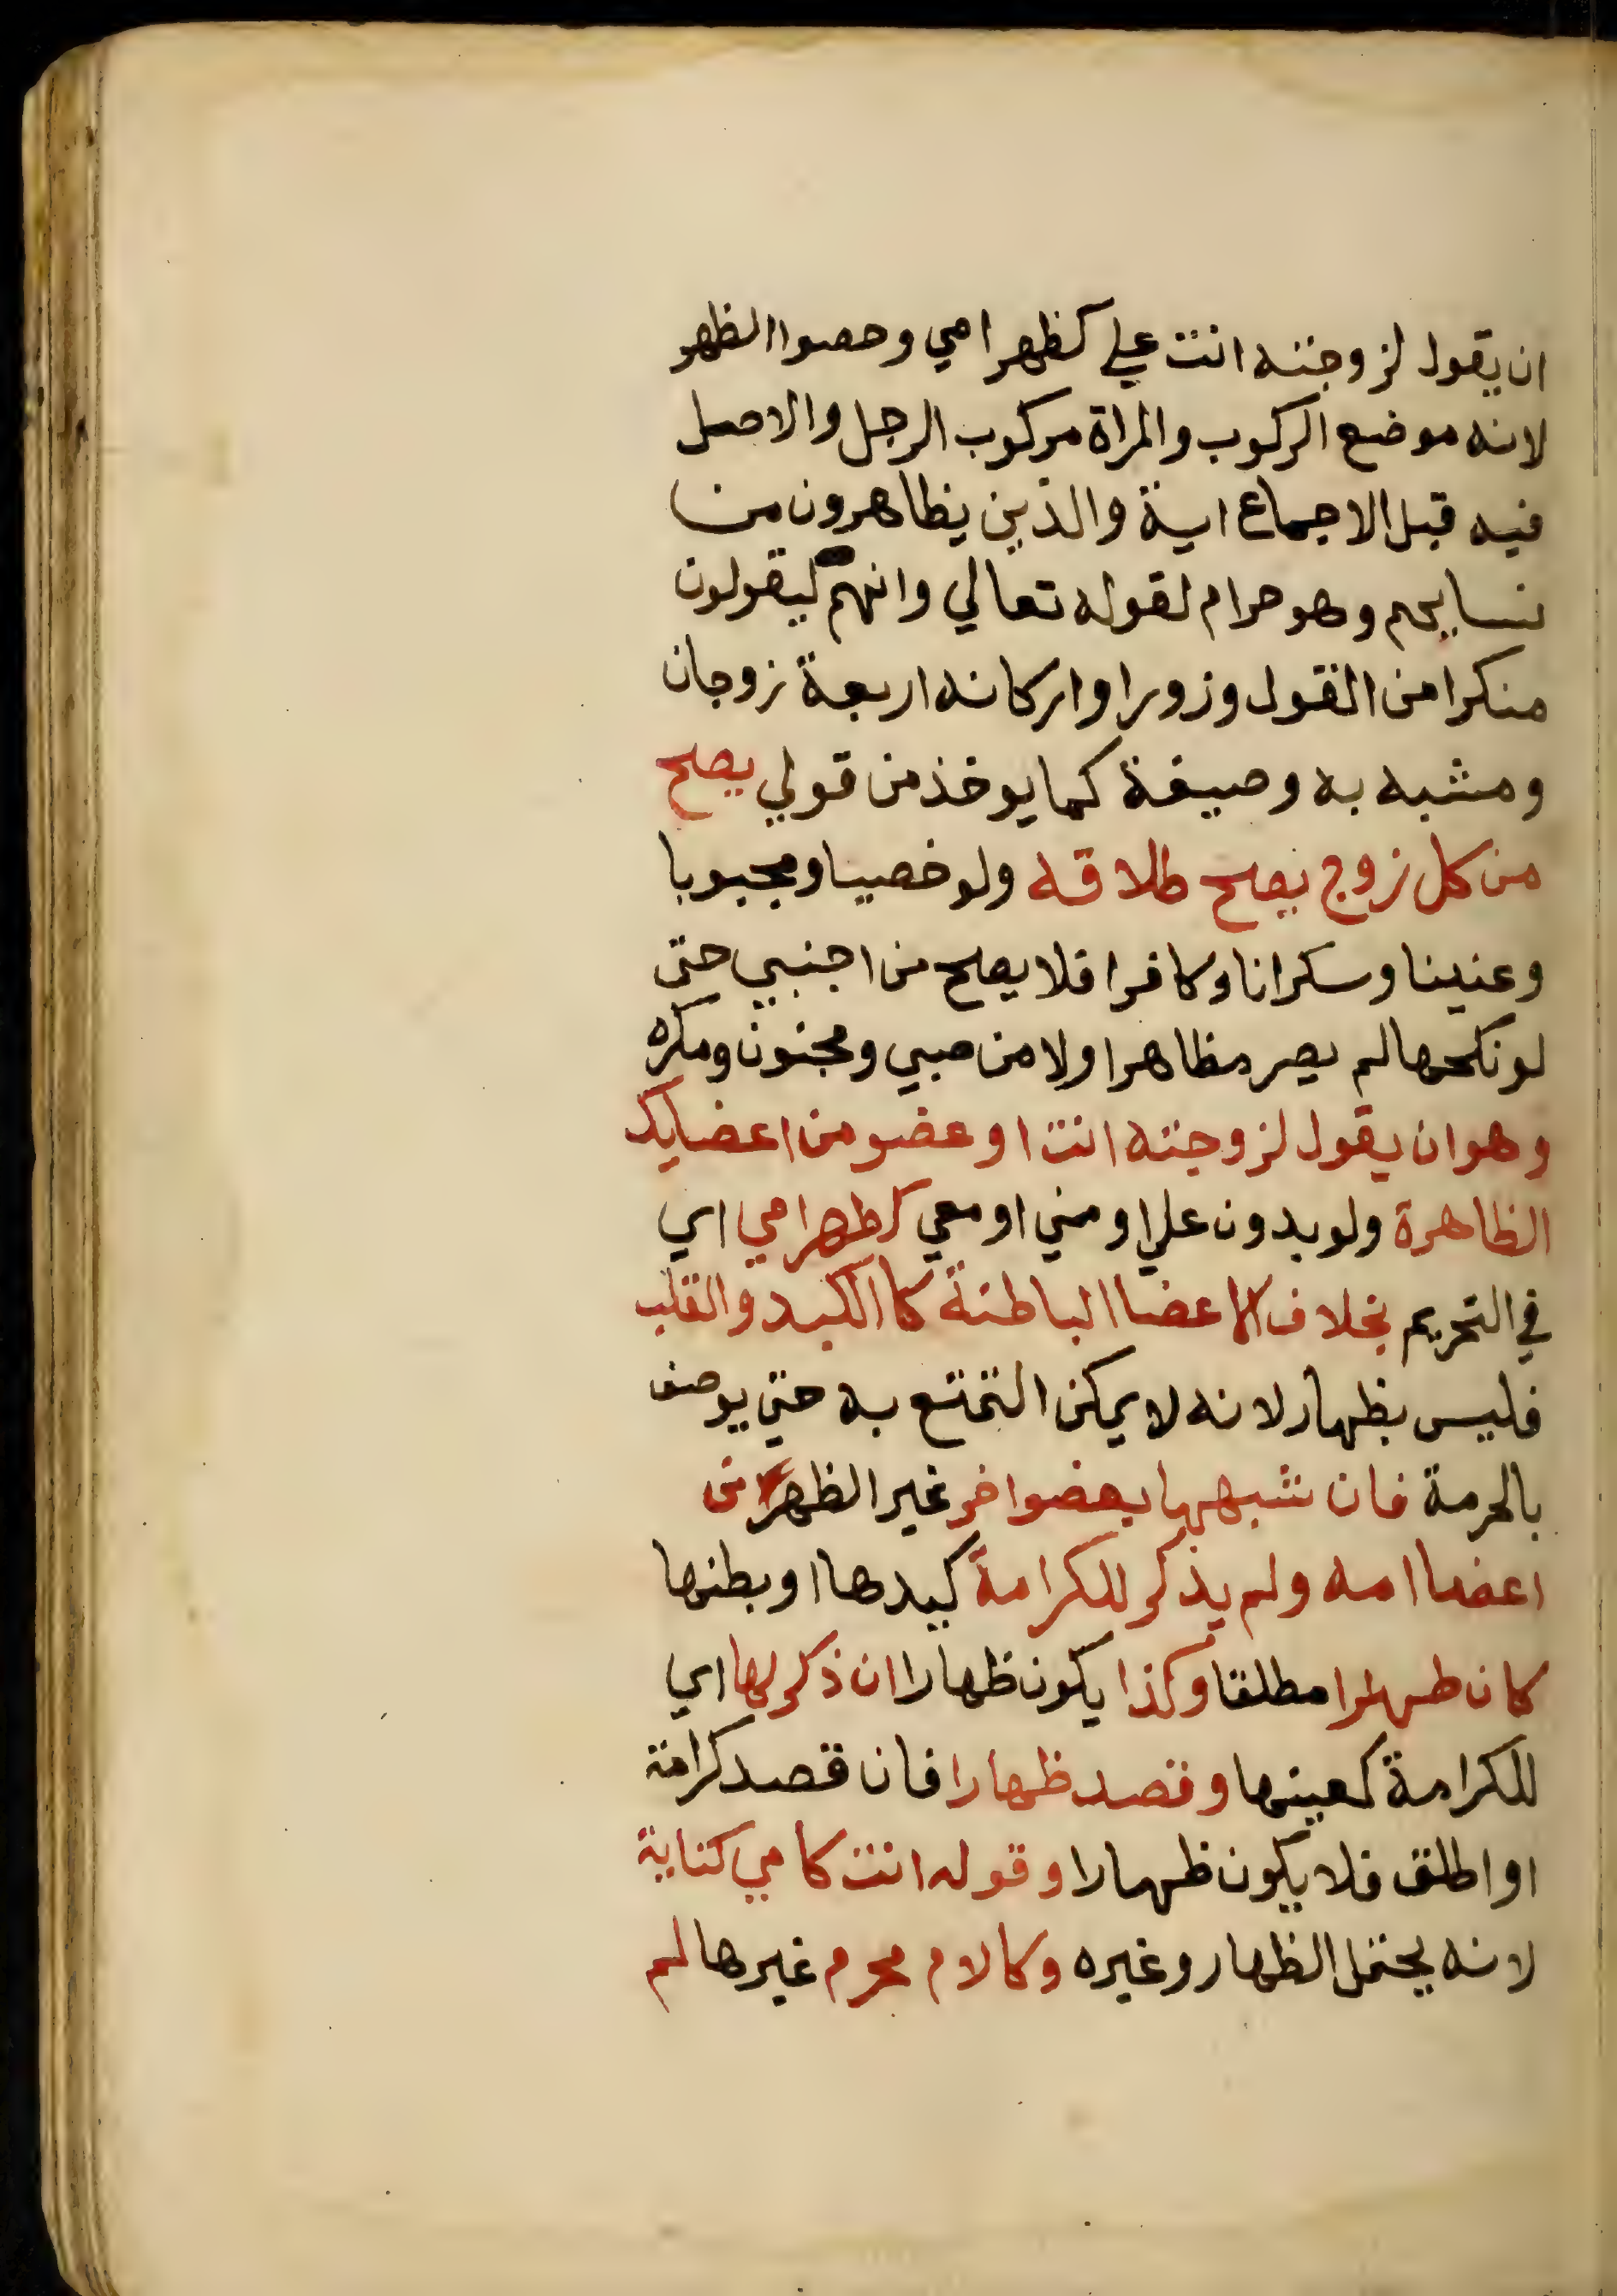 ان يقول لزوجته انت علي كظهر امي وخصوا الظهر
لانه موضع الركوب والمراة مركوب الرجل والاصل
فيه قبل الاجماع اية والذين يظاهرون من
نسايهم وهو حرام لقوله تعالي وانهم ليقولون
منكرا من القول وزورا واركانه اربعة زوجان
ومشبه به وصيغة كما يوخذ من قولي يصح
من كل زوج يصح طلاقه ولو خصيا ومجبوبا
وعنينا وسكرانا وكافرا فلا يصح من اجنبي حتي
لو نكحها لم يصر مظاهرا ولا من صبي ومجنون ومكره
وهو ان يقول لزوجته انت او عضو من اعضايك
الظاهرة ولو بدون علي او مني او معي كظهر امي اي
في التحريم بخلاف الاعضا الباطنة كالكبد والقلب
فليس بظهار لانه لا يمكن التمتع به حتي يوصف
بالحرمة فان شبهها بعضو اخر غير الظهر من
اعضا امه ولم يذكر للكرامة كيدها او بطنها
كان ظهارا مطلقا وكذا يكون ظهارا ان ذكر لها اي
للكرامة كعينها وقصد ظهارا فان قصد كرامة
او اطلق فلا يكون ظهارا وقوله انت كامي كناية
لانه يحتمل الظهار وغيره وكالام محرم غيرها لم